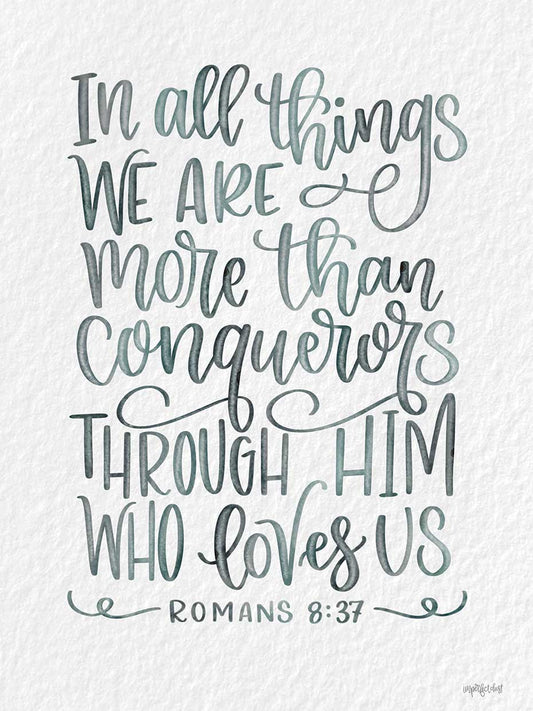 In all things
WE ARE
more than
conquerors
THROUGH HIM
WHO loves US
ROMANS 8:37
imperfect dust